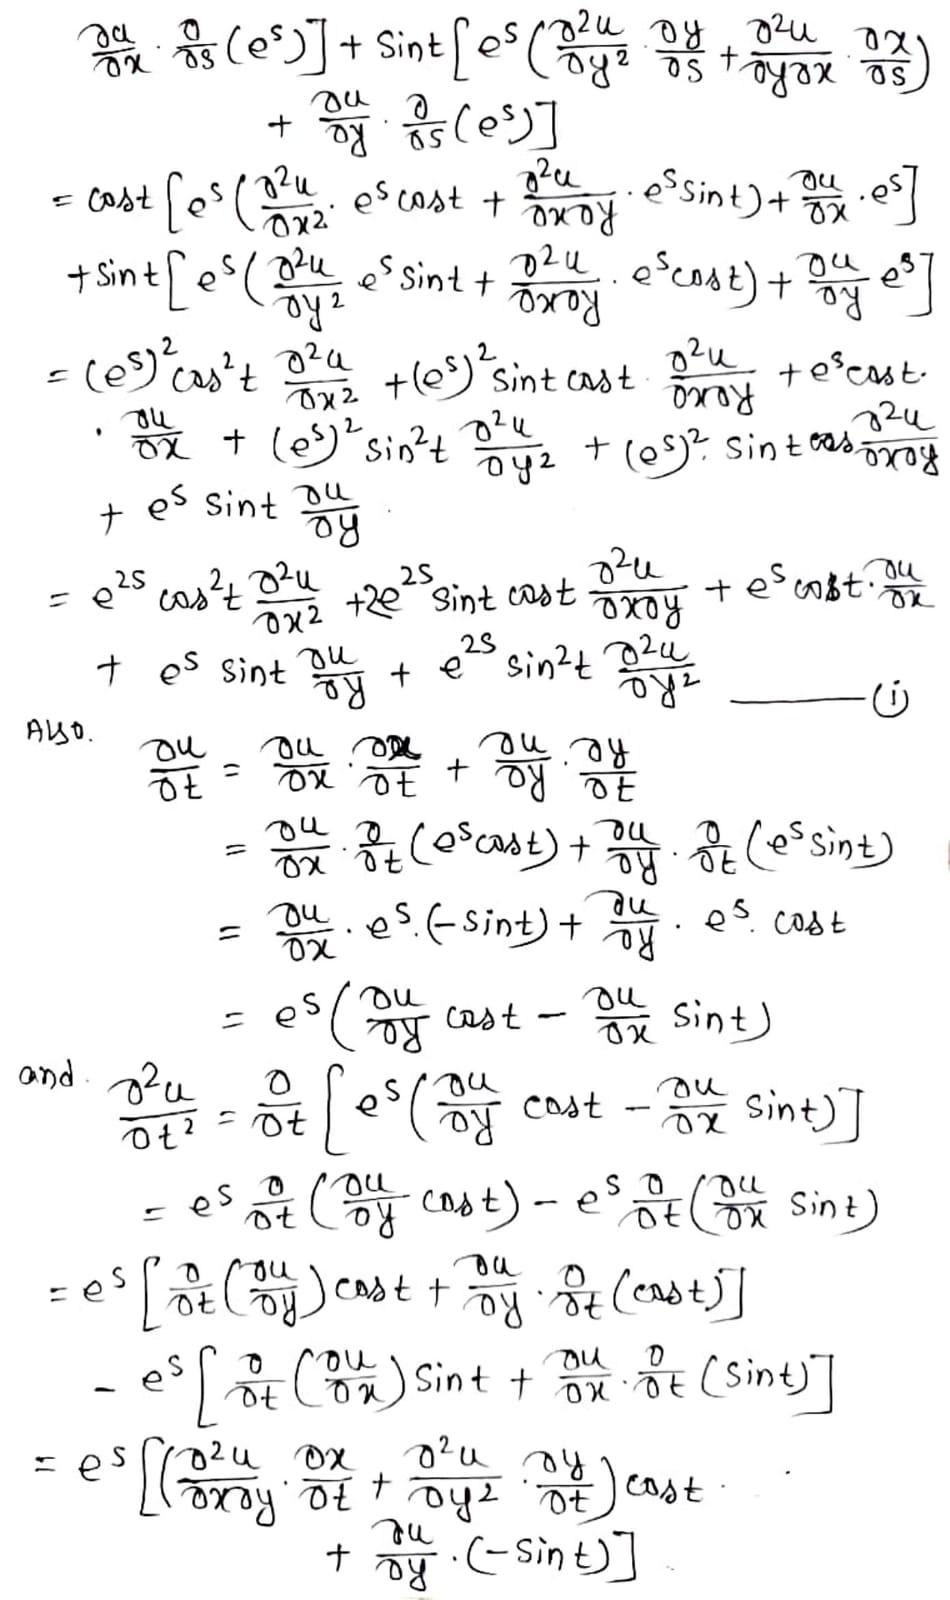 ∂u/∂x · ∂/∂s (e^s)] + sint [e^s (∂²u/∂y² · ∂y/∂s + ∂²u/∂y∂x · ∂x/∂s)
+ ∂u/∂y · ∂/∂s (e^s)]
= cost [e^s (∂²u/∂x² · e^s cost + ∂²u/∂x∂y · e^s sint) + ∂u/∂x · e^s]
+ sint [e^s (∂²u/∂y² e^s sint + ∂²u/∂x∂y · e^s cost) + ∂u/∂y e^s]
= (e^s)² cos²t ∂²u/∂x² + (e^s)² sint cost · ∂²u/∂x∂y + e^s cost ·
· ∂u/∂x + (e^s)² sin²t ∂²u/∂y² + (e^s)² · sint cos ∂²u/∂x∂y
+ e^s sint ∂u/∂y
= e^2s cos²t ∂²u/∂x² + 2e^2s sint cost ∂²u/∂x∂y + e^s cost · ∂u/∂x
+ e^s sint ∂u/∂y + e^2s sin²t ∂²u/∂y² ——— (i)
Also. ∂u/∂t = ∂u/∂x · ∂x/∂t + ∂u/∂y · ∂y/∂t
= ∂u/∂x · ∂/∂t (e^s cost) + ∂u/∂y · ∂/∂t (e^s sint)
= ∂u/∂x · e^s · (-sint) + ∂u/∂y · e^s · cost
= e^s (∂u/∂y cost - ∂u/∂x sint)
and. ∂²u/∂t² = ∂/∂t [e^s (∂u/∂y cost - ∂u/∂x sint)]
= e^s ∂/∂t (∂u/∂y cost) - e^s ∂/∂t (∂u/∂x sint)
= e^s [∂/∂t (∂u/∂y) cost + ∂u/∂y · ∂/∂t (cost)]
- e^s [∂/∂t (∂u/∂x) sint + ∂u/∂x · ∂/∂t (sint)]
= e^s [(∂²u/∂x∂y · ∂x/∂t + ∂²u/∂y² · ∂y/∂t) cost
+ ∂u/∂y · (-sint)]